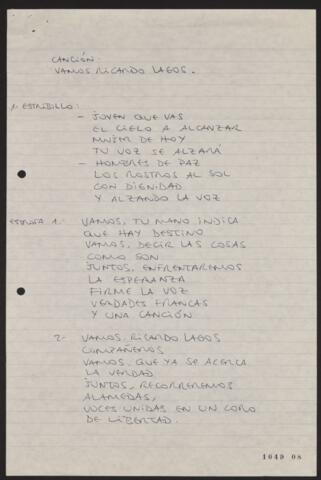 CANCIÓN:
VAMOS RICARDO LAGOS.
1. ESTRIBILLO:
- JOVEN QUE VAS
EL CIELO A ALCANZAR
MUJER DE HOY
TU VOZ SE ALZARÁ
- HOMBRES DE PAZ
LOS ROSTROS AL SOL
CON DIGNIDAD
Y ALZANDO LA VOZ
ESTROFA 1.- VAMOS, TU MANO INDICA
QUE HAY DESTINO
VAMOS, DECIR LAS COSAS
COMO SON
JUNTOS, ENFRENTAREMOS
LA ESPERANZA
FIRME LA VOZ
VERDADES FRANCAS
Y UNA CANCIÓN
2.- VAMOS, RICARDO LAGOS
COMPAÑEROS
VAMOS, QUE YA SE ACERCA
LA VERDAD
JUNTOS, RECORREREMOS
ALAMEDAS,
VOCES UNIDAS EN UN CORO
DE LIBERTAD.
1049 08